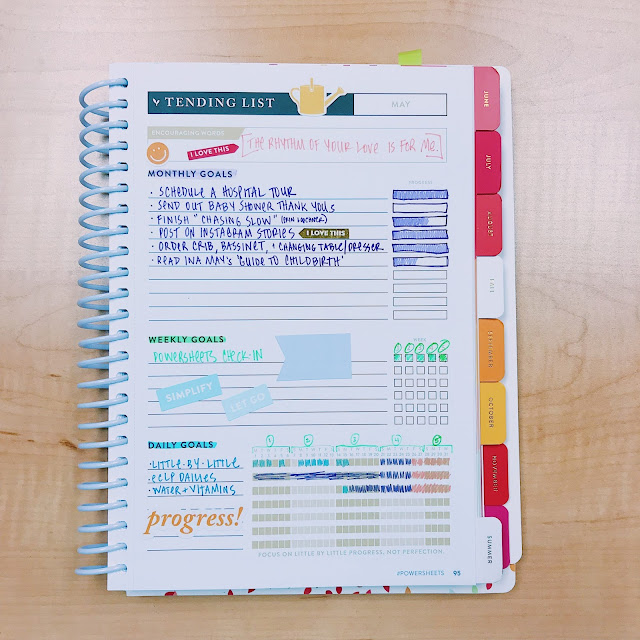 TENDING LIST
MAY
ENCOURAGING WORDS
I LOVE THIS
THE RHYTHM OF YOUR LOVE IS FOR ME.
MONTHLY GOALS
PROGRESS
· SCHEDULE A HOSPITAL TOUR
· SEND OUT BABY SHOWER THANK YOUS
· FINISH "CHASING SLOW" (ERIN LOECHNER)
· POST ON INSTAGRAM STORIES I LOVE THIS
· ORDER CRIB, BASSINET, + CHANGING TABLE/DRESSER
· READ INA MAY'S "GUIDE TO CHILDBIRTH"
WEEKLY GOALS
WEEK
POWERSHEETS CHECK-IN
SIMPLIFY
LET GO
DAILY GOALS
1 2 3 4 5
· LITTLE-BY-LITTLE
· ECLP DAILIES
· WATER + VITAMINS
progress!
FOCUS ON LITTLE BY LITTLE PROGRESS, NOT PERFECTION.
#POWERSHEETS 95
JUNE
JULY
AUGUST
FALL
SEPTEMBER
OCTOBER
NOVEMBER
SUMMER